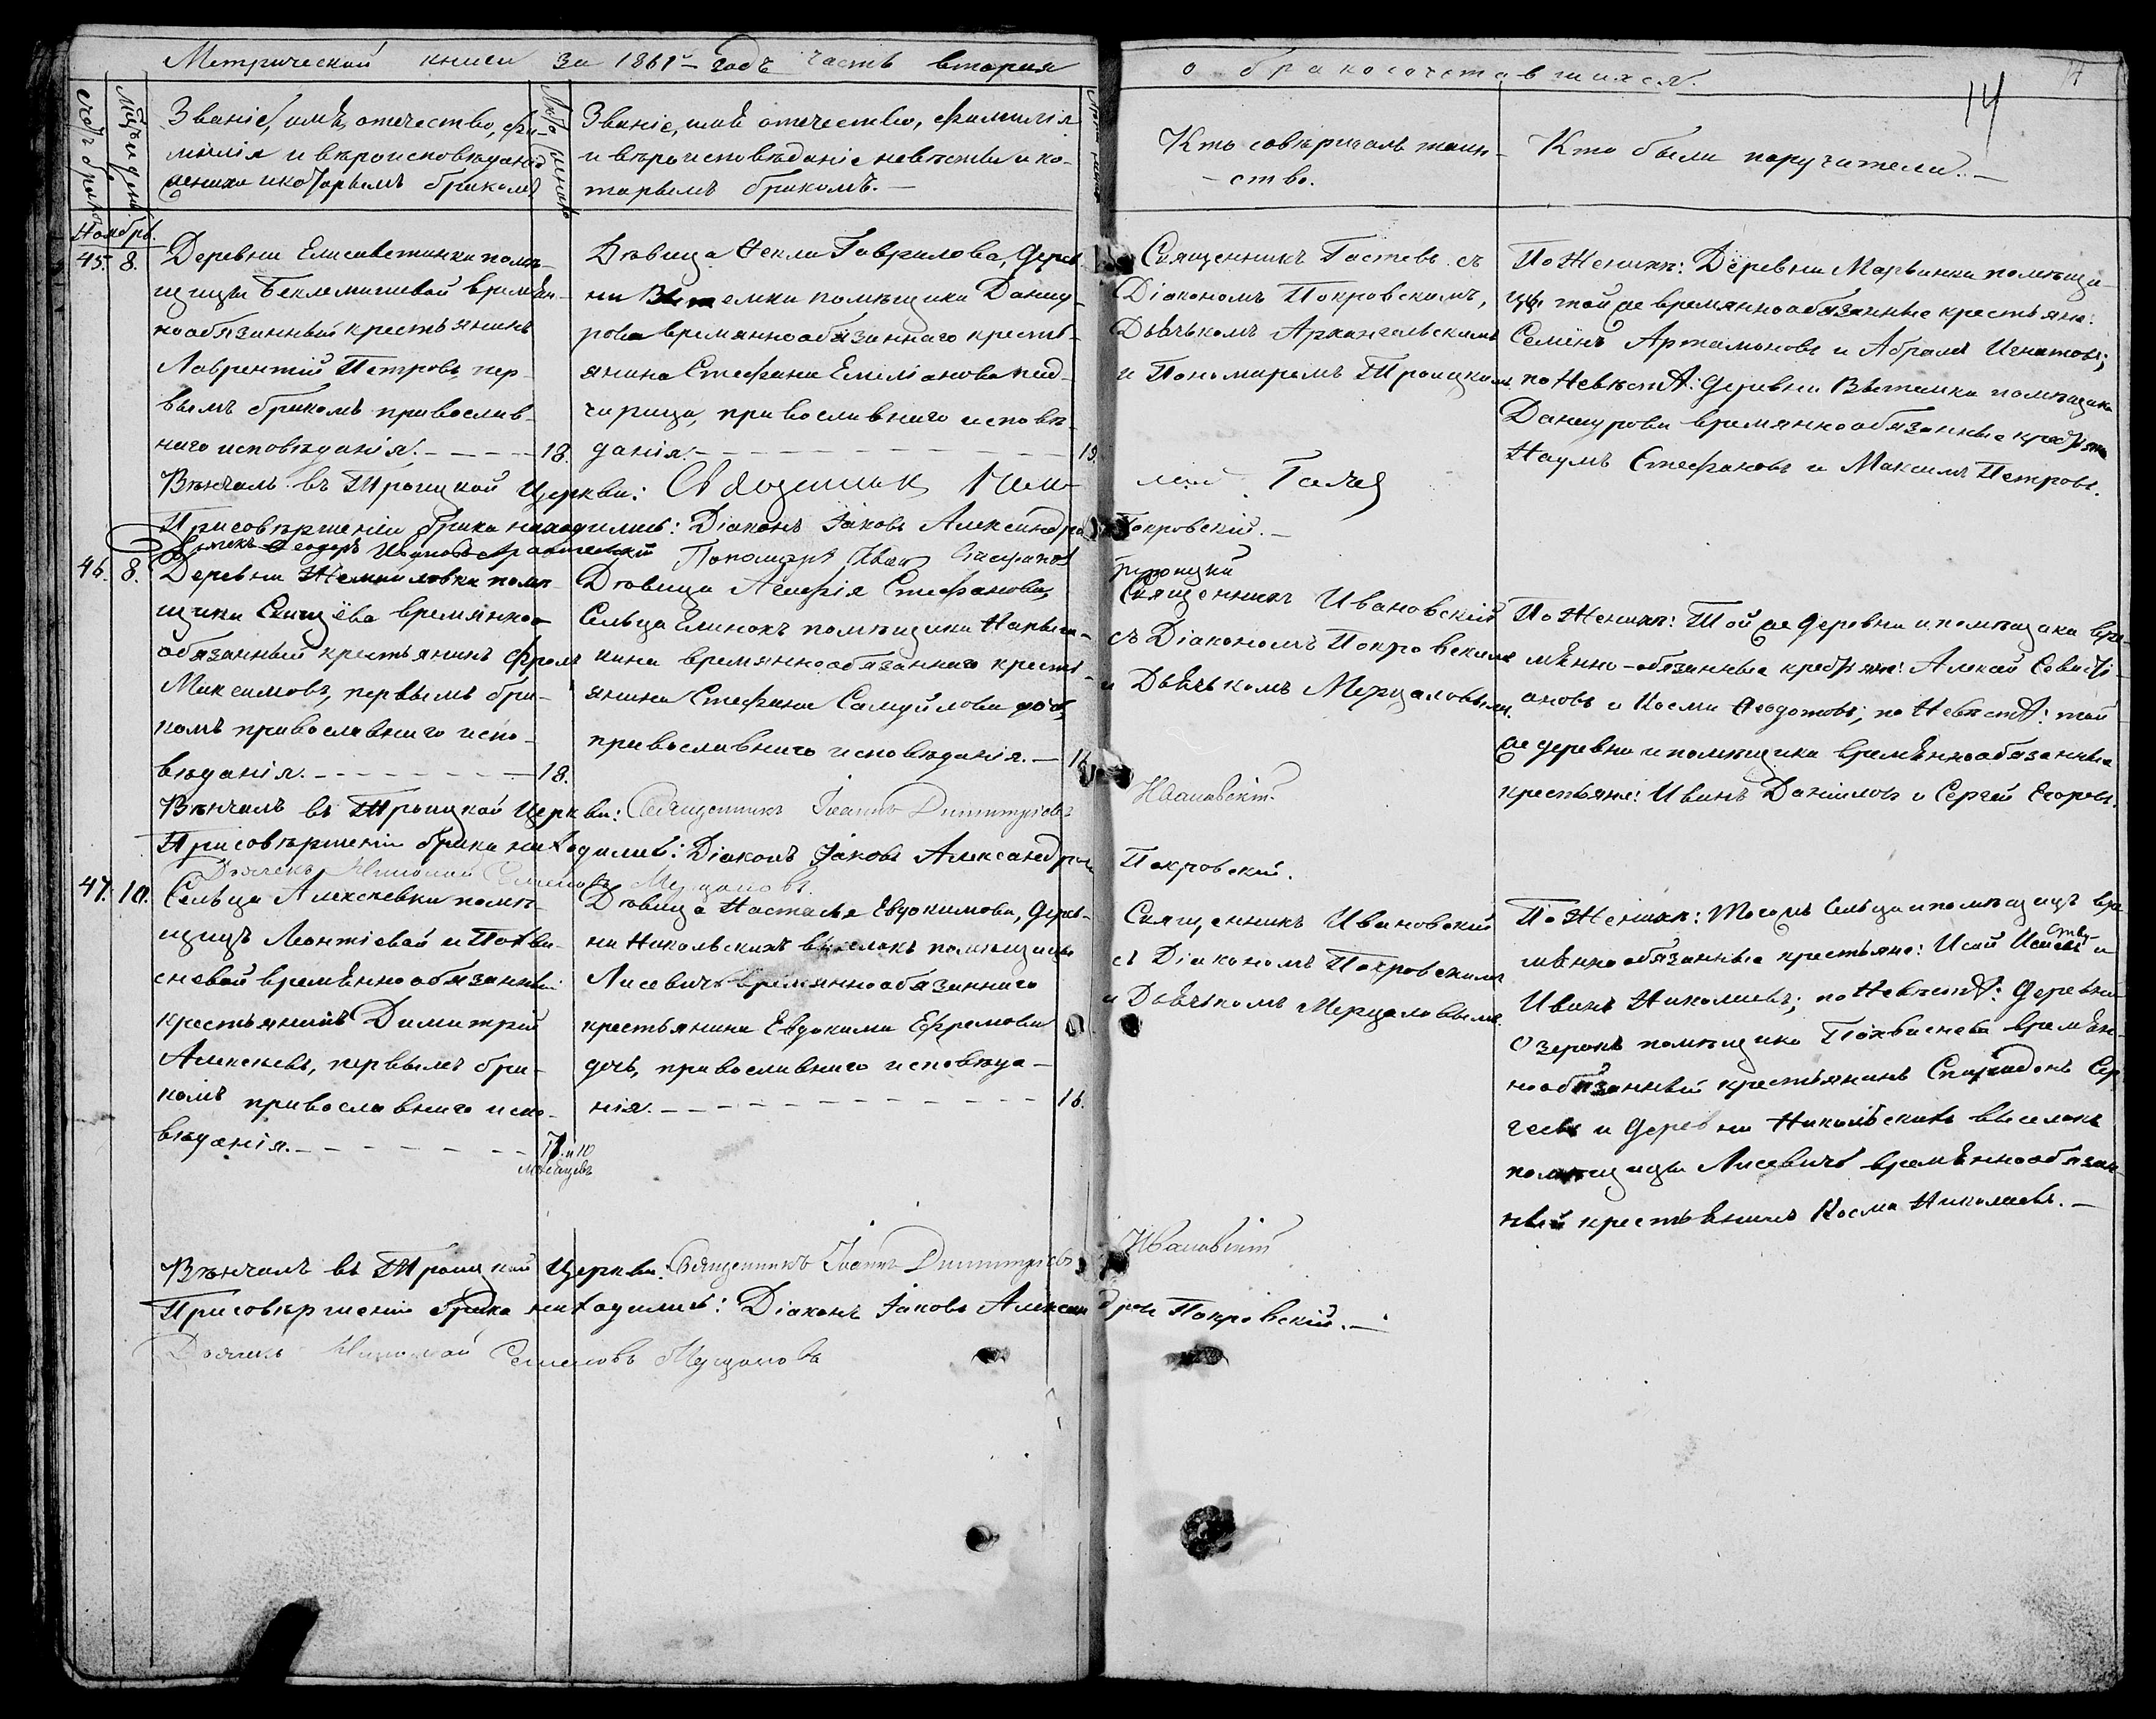 Метрической книги за 1861й годъ часть вторая
о бракосочетавшихся.
14
Счетъ браковъ
Мѣсяцъ и день
Званіе, имя, отечество, фа-
милія и вѣроисповѣданіе
жениха и которымъ бракомъ
Лѣта жениха
Званіе, имя отечество, фамилія
и вѣроисповѣданіе невѣсты и ко-
торымъ бракомъ.—
Кто совѣршалъ таин-
-ство.
Кто были поручители.—
Ноябрь.
45. 8.
Деревни Елисаветинки помѣ-
щицы Беклемишевой времян-
нообязанный крестьянинъ
Лаврентій Петровъ, пер-
вымъ бракомъ православ-
наго исповѣданія. 18.
Дѣвица Ѳекла Гаврилова, дерев-
ни помѣщика Даниу-
рова времяннообязаннаго кресть-
янина Стефана Емеліанова пад-
чирица, православнаго исповѣ-
данія. 19.
Священникъ Гастевъ съ
Діакономъ Покровскимъ,
Дьячькомъ Архангельскимъ
и Пономаремъ Троицкимъ
По Женихѣ: Деревни Марьинки помѣщи-
цы той же времяннообязанные крестьяне:
Семёнъ Артамоновъ и Абрамъ Игнатовъ;
по Невѣстѣ: деревни помѣщика
Даниурова времяннообязанные крестьяне
Наумъ Стефановъ и Максимъ Петровъ.
Вѣнчалъ въ Троицкой Церкви: Священник Гастев
При совѣршеніи брака находились: Діаконъ Іаковъ Александровъ Покровскій.—
Дьячекъ Ѳеодоръ Ивановъ Архангельскій Пономарь Иванъ Стефановъ Троицкій
46. 8.
Деревни помѣ-
щика времянно-
обязанный крестьянинъ Фролъ
Максимовъ, первымъ бра-
комъ православнаго испо-
вѣданія. 18.
Дѣвица Агафія Стефанова,
Сельца Глинокъ помѣщика Нарыш-
кина времяннообязаннаго кресть-
янина Стефана Самуйлова дочь,
православнаго исповѣданія.—
Священникъ Ивановскій
съ Діакономъ Покровскимъ
и Дьячькомъ Мерцаловымъ.
По Женихѣ: Той же деревни и помѣщика вре-
мѣнно-обязанные крестьяне: Алексѣй Савасті-
ановъ и Косма Ѳеодотовъ; по Невѣстѣ: той
же деревни и помѣщика времѣннообязанные
крестьяне: Иванъ Даніиловъ и Сергѣй Егоровъ.
Вѣнчалъ въ Троицкой Церкви: Священникъ Іоаннъ Димитріевъ Ивановскій
При совѣршеніи брака находились: Діаконъ Іаковъ Александровъ Покровскій.
Дьячекъ Николай Семеновъ Мерцаловъ.
47. 10.
Сельца Алексѣевки помѣ-
щицъ Леонтіевой и Похви-
сневой времѣннообязанный
крестьянинъ Димитрій
Алексѣевъ, первымъ бра-
комъ православнаго испо-
вѣданія. 17. и 10
мѣсяцевъ
Дѣвица Настасья Евдокимова, дерев-
ни Никольскихъ выселокъ помѣщицы
Лисевичъ времяннообязаннаго
крестьянина Евдокима Ефремова
дочь, православнаго исповѣда-
нія. 16.
Священникъ Ивановскій
съ Діакономъ Покровскимъ
и Дьячькомъ Мерцаловымъ.
По Женихѣ: Тогожъ Сельца и помѣщицъ вре-
мѣннообязанные крестьяне: Исай и
Иванъ Николаевъ; по Невѣстѣ: деревни
Озерокъ помѣщика Похвиснева времѣн-
нообязанный крестьянинъ Спиридонъ Сер-
гѣевъ и деревни Никольскихъ выселокъ
помѣщицы Лисевичъ времѣннообязан-
ный крестьянинъ Косма Николаевъ.—
Вѣнчалъ въ Троицкой Церкви: Священникъ Іоаннъ Димитріевъ Ивановскій
При совѣршеніи брака находились: Діаконъ Іаковъ Александровъ Покровскій.—
Дьячекъ Николай Семеновъ Мерцаловъ